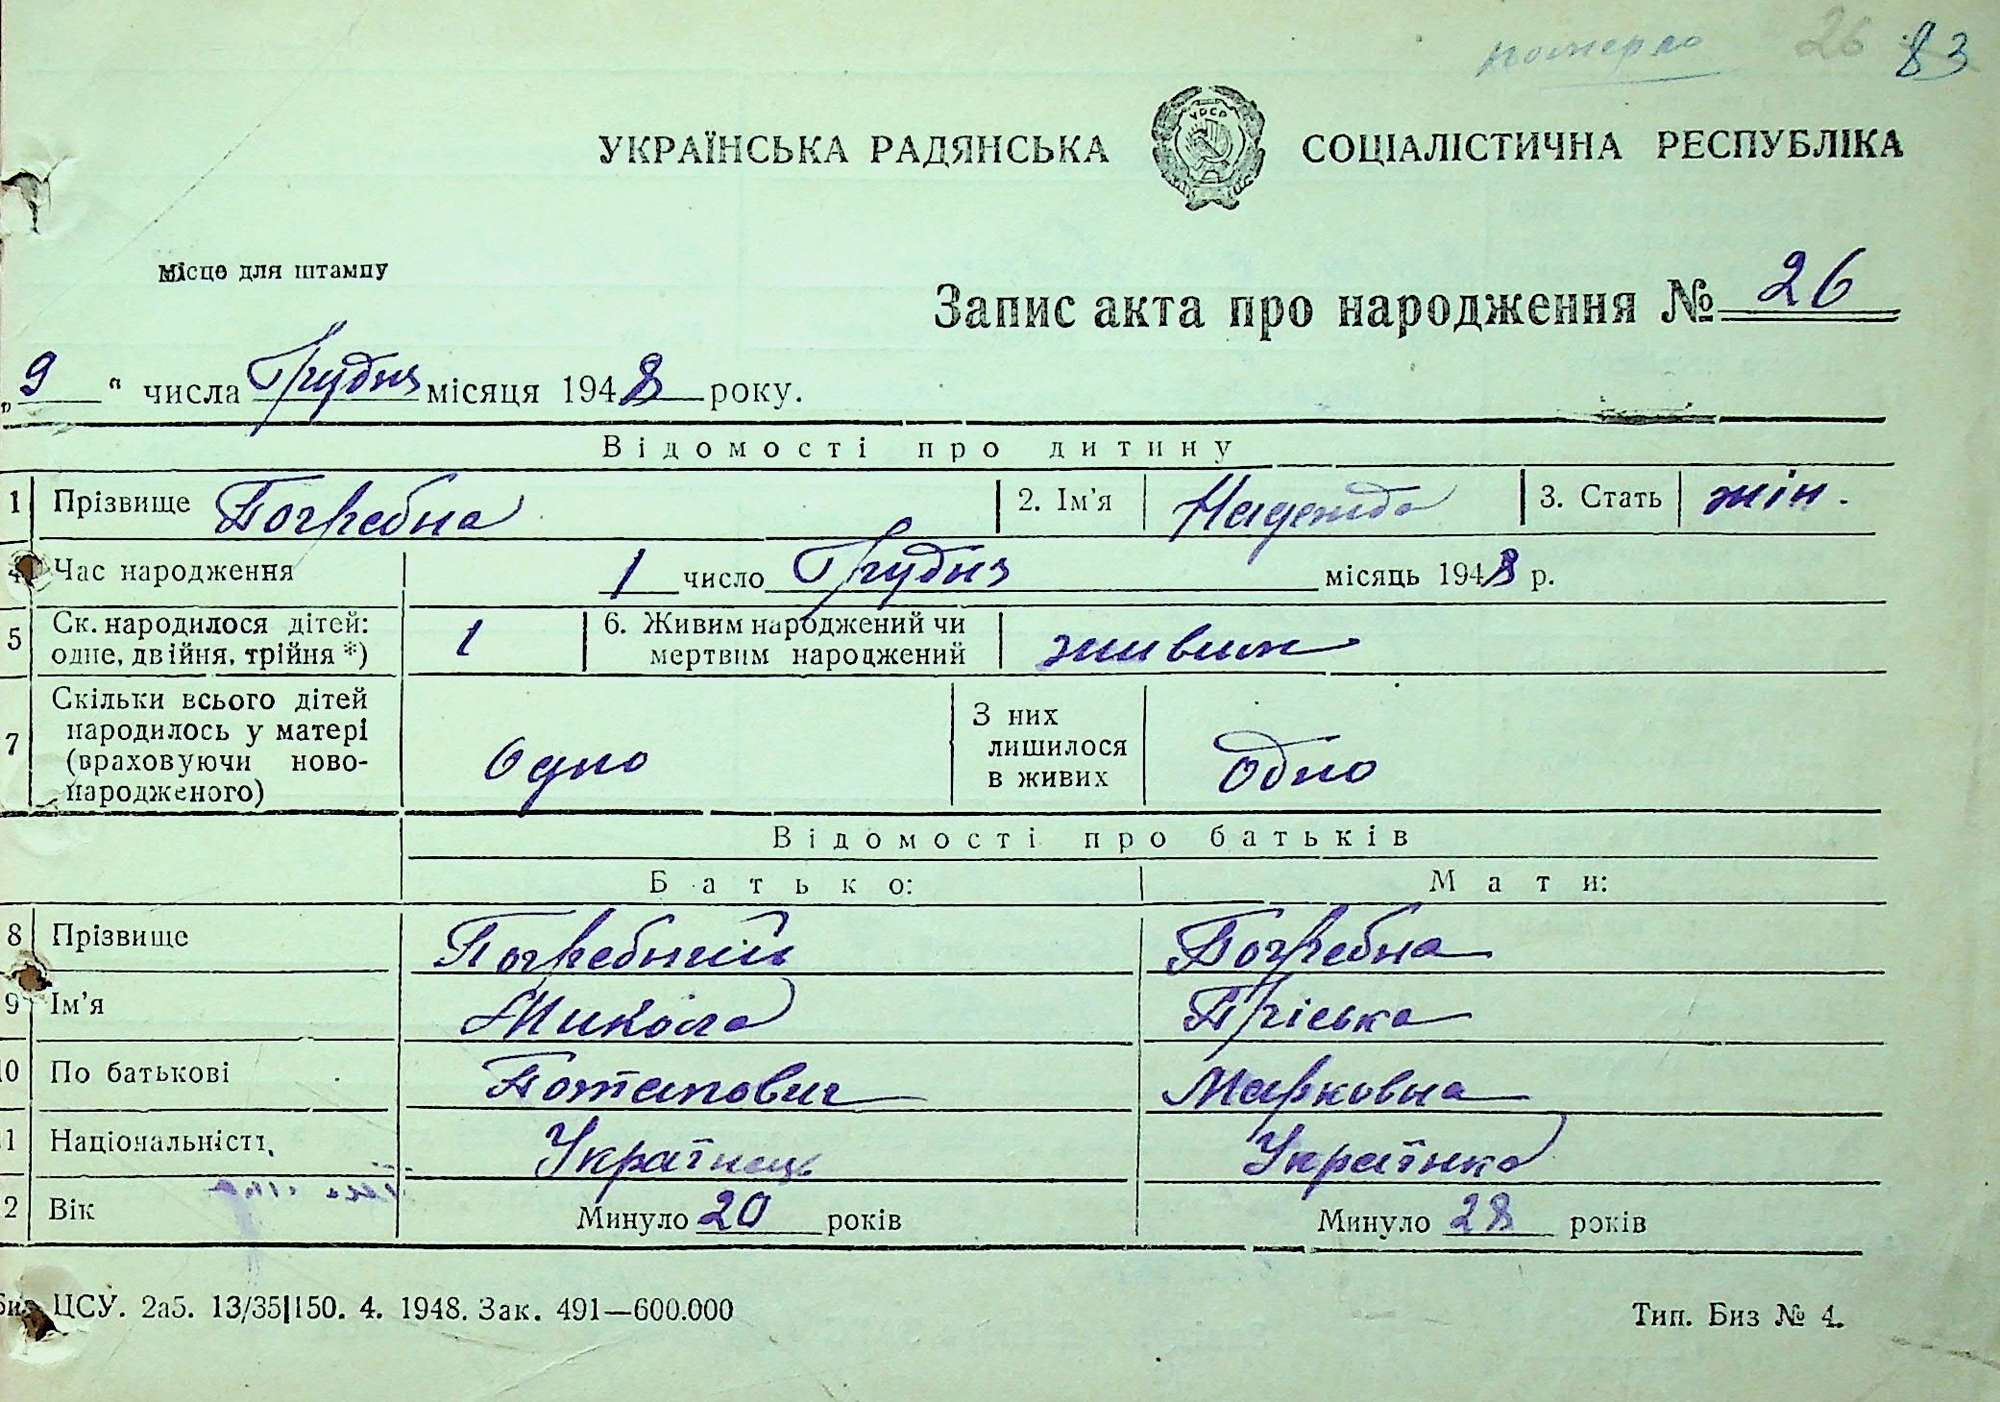 померло 26 83
УКРАЇНСЬКА РАДЯНСЬКА СОЦІАЛІСТИЧНА РЕСПУБЛІКА
УРСР
Місце для штампу
Запис акта про народження № 26
„9“ числа Грудня місяця 1948 року.
Відомості про дитину
1 Прізвище Погребна 2. Ім'я Надежда 3. Стать жін.
4 Час народження 1 число Грудня місяць 1948 р.
5 Ск. народилося дітей: одне, двійня, трійня *) 1 6. Живим народжений чи мертвим народжений живим
7 Скільки всього дітей народилось у матері (враховуючи ново-народженого) Одно З них лишилося в живих Одно
Відомості про батьків
Батько: Мати:
8 Прізвище Погребний Погребна
9 Ім'я Микола Пріська
10 По батькові Потапович Марковна
1 Національність Українець Українка
2 Вік Минуло 20 років Минуло 28 років
ЦСУ. 2а5. 13/35|150. 4. 1948. Зак. 491—600.000 Тип. Биз № 4.